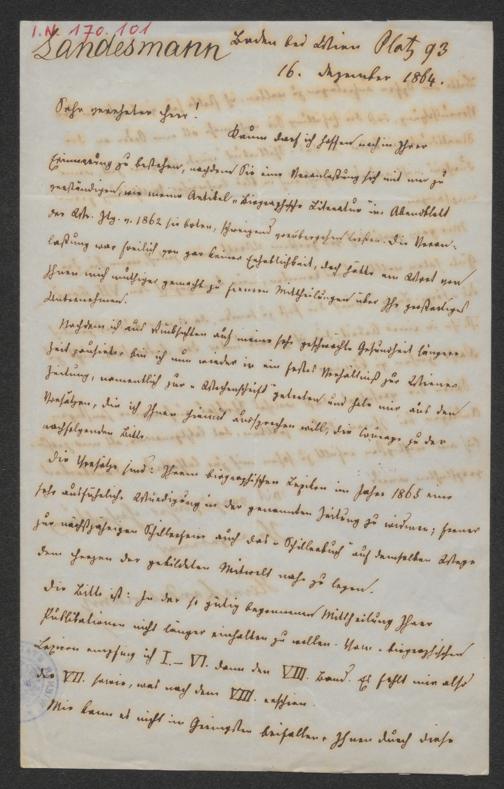 I.N. 170.101
Landesmann
Baden bei Wien Platz 93
16. Dezember 1864.
Sehr verehrter Herr!
Kaum darf ich hoffen noch in Ihrer
Erinnerung zu bestehen, nachdem Sie eine Veranlaßung sich mit mir zu
verständigen, wie meine Artikel „Biographische Literatur" im Abendblatt
der Wr. Ztg. v. 1862 sie boten, schweigend vorübergehen ließen. Die Veran-
laßung war freilich von gar keiner Erheblichkeit, doch hätte ein Wort von
Ihnen mich muthiger gemacht zu ferneren Mittheilungen über Ihr großartiges
Unternehmen.
Nachdem ich aus Rücksichten auf meine sehr geschwächte Gesundheit längere
Zeit pausirte, bin ich nun wieder in ein festes Verhältniß zur Wiener
Zeitung, namentlich zur „Wochenschrift" getreten und hole mir aus den
Vorsätzen, die ich Ihnen hiemit aussprechen will, die Courage zu der
nachfolgenden Bitte.
Die Vorsätze sind: Ihrem biographischen Lexikon im Jahre 1865 eine
sehr ausführliche Würdigung in der genannten Zeitung zu widmen; ferner
zur nächstjährigen Schillerfeier auch das „Schillerbuch" auf demselben Wege
dem Herzen der gebildeten Mitwelt nahe zu legen.
Die Bitte ist: In der so gütig begonnenen Mittheilung Ihrer
Publikationen nicht länger einhalten zu wollen. Vom biographischen
Lexicon empfing ich I.–VI. dann den VIII. Band. Es fehlt mir also
der VII. sowie, was nach dem VIII. erschien.
Mir kann es nicht im Geringsten beifallen, Ihnen durch diese